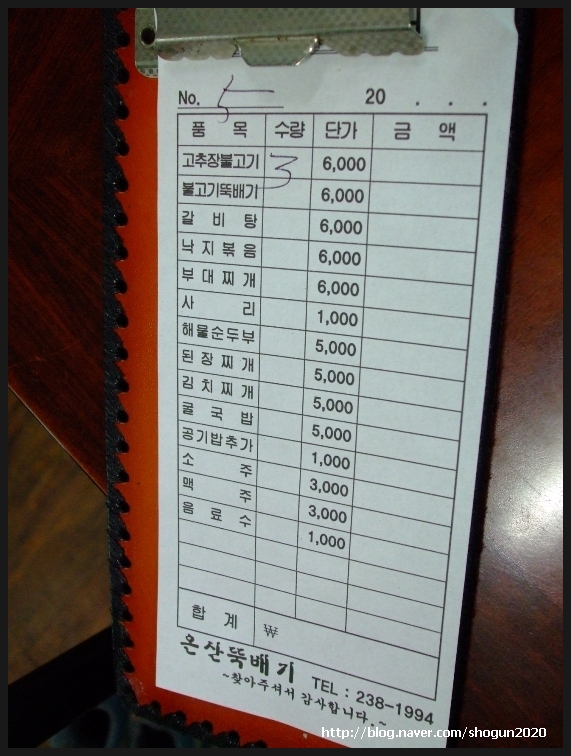 No. 5 20 . . .
품 목 수량 단가 금 액
고추장불고기 3 6,000
불고기뚝배기 6,000
갈 비 탕 6,000
낙 지 볶 음 6,000
부 대 찌 개 6,000
사 리 1,000
해물순두부 5,000
된 장 찌 개 5,000
김 치 찌 개 5,000
굴 국 밥 5,000
공기밥추가 1,000
소 주 3,000
맥 주 3,000
음 료 수 1,000
합 계 ₩
온산뚝배기 TEL : 238-1994
~찾아주셔서 감사합니다.~
http://blog.naver.com/shogun2020